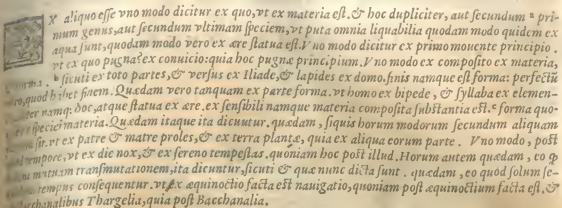 EX aliquo esse vno modo dicitur ex quo, vt ex materia est. & hoc dupliciter, aut secundum a pri-
mum genus, aut secundum vltimam speciem, vt puta omnia liquabilia quodam modo quidem ex
aqua sunt, quodam modo vero ex ære statua est. Vno modo dicitur ex primo mouente principio.
vt ex quo pugna? ex conuicio: quia hoc pugnæ principium. Vno modo ex composito ex materia,
forma. b sicuti ex toto partes, & versus ex Iliade, & lapides ex domo. finis namque est forma: perfectū
ro, quod habet finem. Quædam vero tanquam ex parte forma. vt homo ex bipede, & syllaba ex elemen-
ter namq; hoc, atque statua ex ære. ex sensibili namque materia composita substantia est. c forma quo-
speciei materia. Quædam itaque ita dicuntur. quædam, siquis horum modorum secundum aliquam
sit. vt ex patre & matre proles, & ex terra plantæ, quia ex aliqua eorum parte. Vno modo, post
tempore, vt ex die nox, & ex sereno tempestas. quoniam hoc post illud. Horum autem quædam, eo ꝙ
mutuam transmutationem, ita dicuntur, sicuti & quæ nunc dicta sunt. quædam, eo quod solum se-
tempus consequentur. vt ex æquinoctio facta est nauigatio, quoniam post æquinoctium facta est, &
Bacchanalibus Thargelia, quia post Bacchanalia.